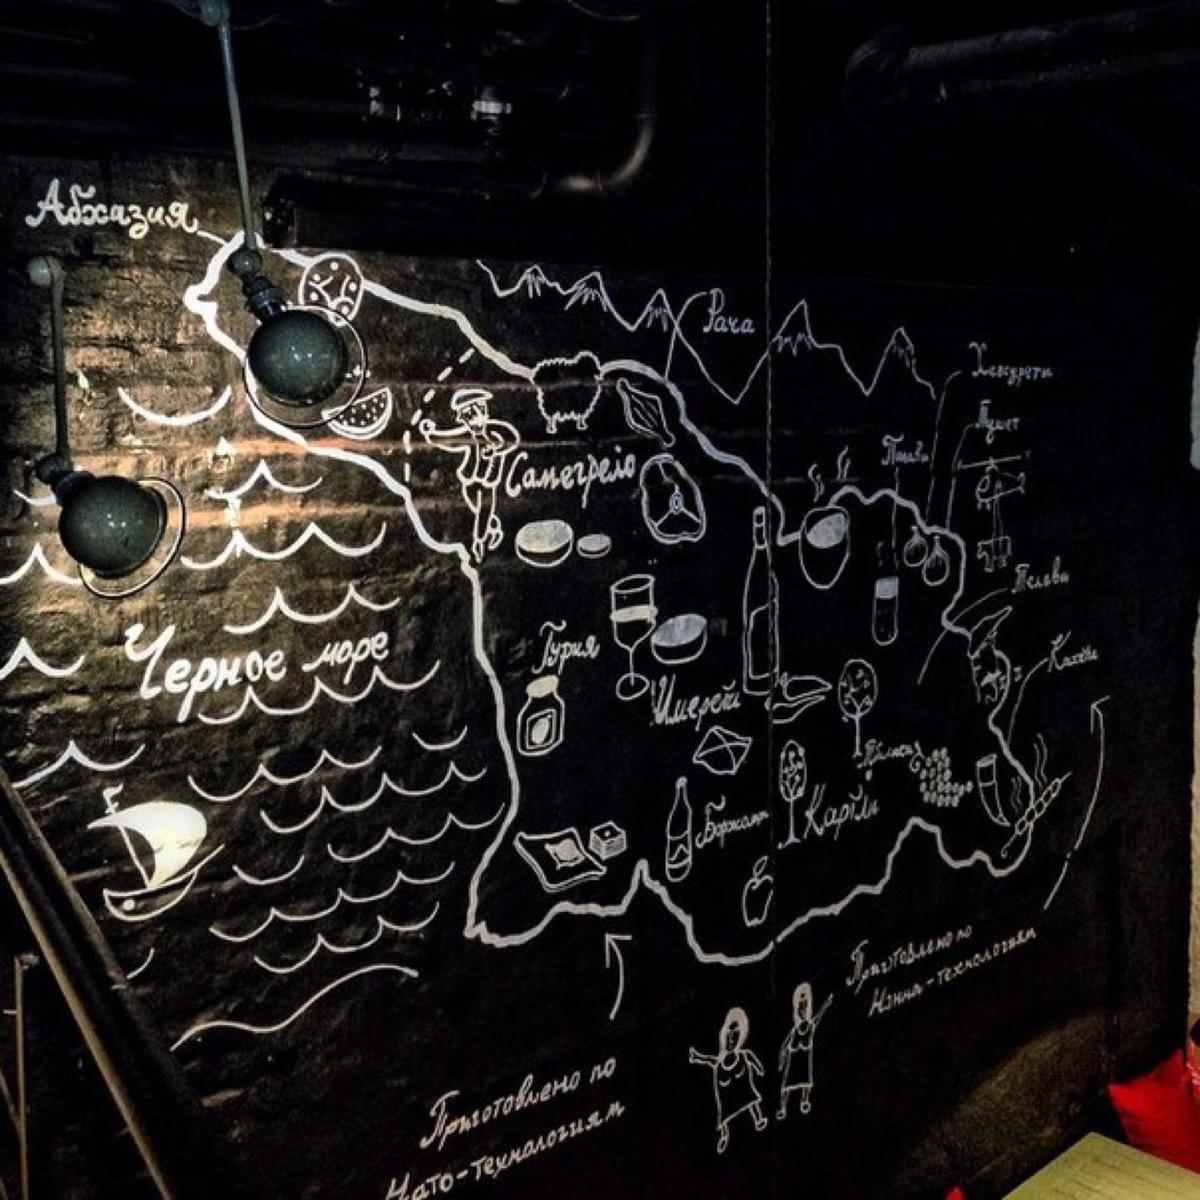 Абхазия
Рача
Хевсурети
Тушет
Самегрело
Телави
Черное море
Гурия
Имерети
Тбилиси
Боржоми
Картли
Приготовлено по
Нанна-технологиям
Приготовлено по
Нато-технологиям